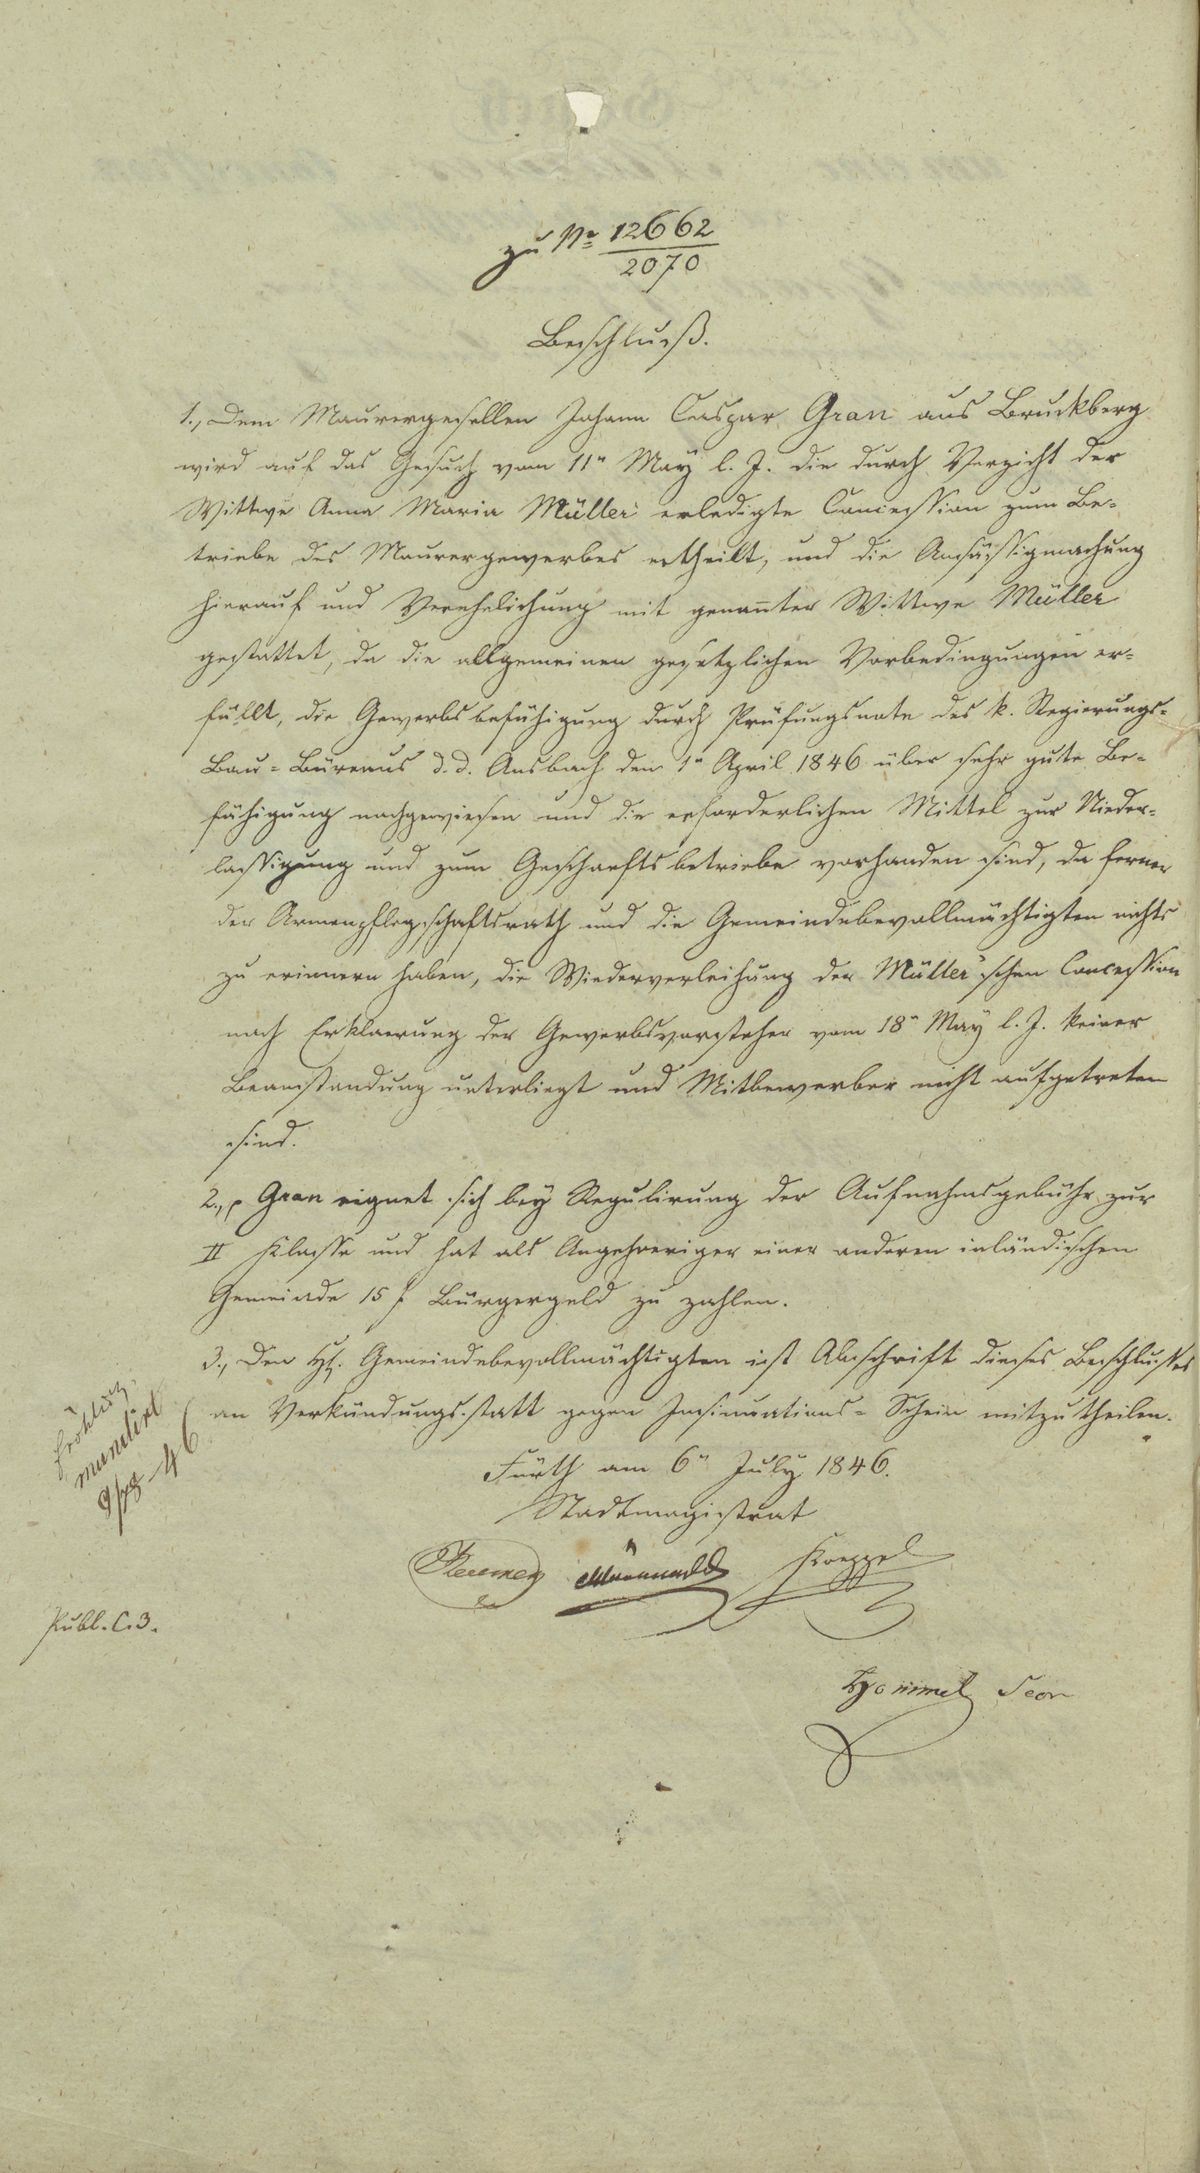 zu No 12662
2070
Beschluß.
1., Dem Maurergesellen Johann Caspar Gran aus Bruckberg
wird auf das Gesuch vom 11n May l. J. die durch Verzicht der
Wittwe Anna Maria Müller erledigte Concession zum Be-
triebe des Maurergewerbes ertheilt, und die Ansässigmachung
hierauf und Verehelichung mit genannter Wittwe Müller
gestattet, da die allgemeinen gesetzlichen Vorbedingungen er-
füllt, die Gewerbsbefähigung durch Prüfungsnote des k. Regierungs-
Bau-Büreaus d. d. Ansbach den 1n April 1846 über sehr gute Be-
fähigung nachgewiesen und die erforderlichen Mittel zur Nieder-
lassigung und zum Geschaeftsbetriebe vorhanden sind, da ferner
der Armenpflegschaftsrath und die Gemeindebevollmächtigten nichts
zu erinnern haben, die Wiederverleihung der Müller'schen Concession
nach Erklaerung der Gewerbsvorsteher vom 18n May l. J. keiner
Beanstandung unterliegt und Mitbewerber nicht aufgetreten
sind.
2., p Gran eignet sich bey Regulirung der Aufnahmsgebühr zur
II Klasse und hat als Angehoeriger einer anderen inländischen
Gemeinde 15 f Bürgergeld zu zahlen.
3., Den HH. Gemeindebevollmächtigten ist Abschrift dieses Beschlusses
an Verkündungsstatt gegen Insinuations-Schein mitzutheilen.
mundirt
9/7 46
Fürth am 6n July 1846.
Stadtmagistrat
Koeppel
Publ. C. 3.
Hommel Secr